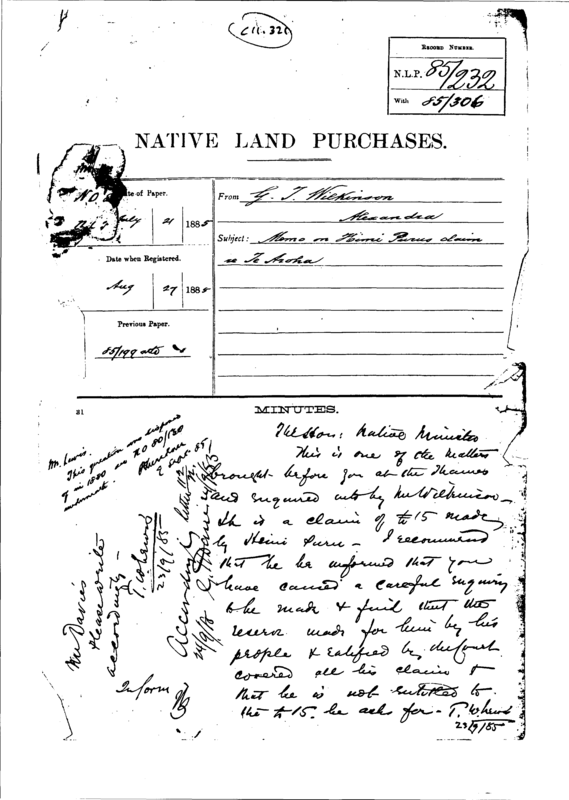 C11.321
RECORD NUMBER.
N.L.P. 85/232
With 85/306
NATIVE LAND PURCHASES.
Date of Paper.
July 21 1885
Date when Registered.
Aug 27 1885
Previous Paper.
85/199
From G. T. Wilkinson
Alexandra
Subject: Memo on Himi Purus claim
re Te Aroha
21
MINUTES.
The Hon: Native Minister
This is one of the matters
brought before you at the Thames
and enquired into by Mr Wilkinson—
It is a claim of £15 made
by Heimi Puru — I recommend
that he be informed that you
have caused a careful enquiry
to be made & find that the
reserve made for him by his
people & ratified by the Court
covered all his claim &
that he is not entitled to
the £15. he asks for — T. W. Lewis
23/9/85
Mr. Lewis.
This question was disposed
of in 1880 see N.O 80/130
Mr Davies
Please write
accordingly—
T. W. Lewis
23/9/85
According letter
24/9/85
Inform